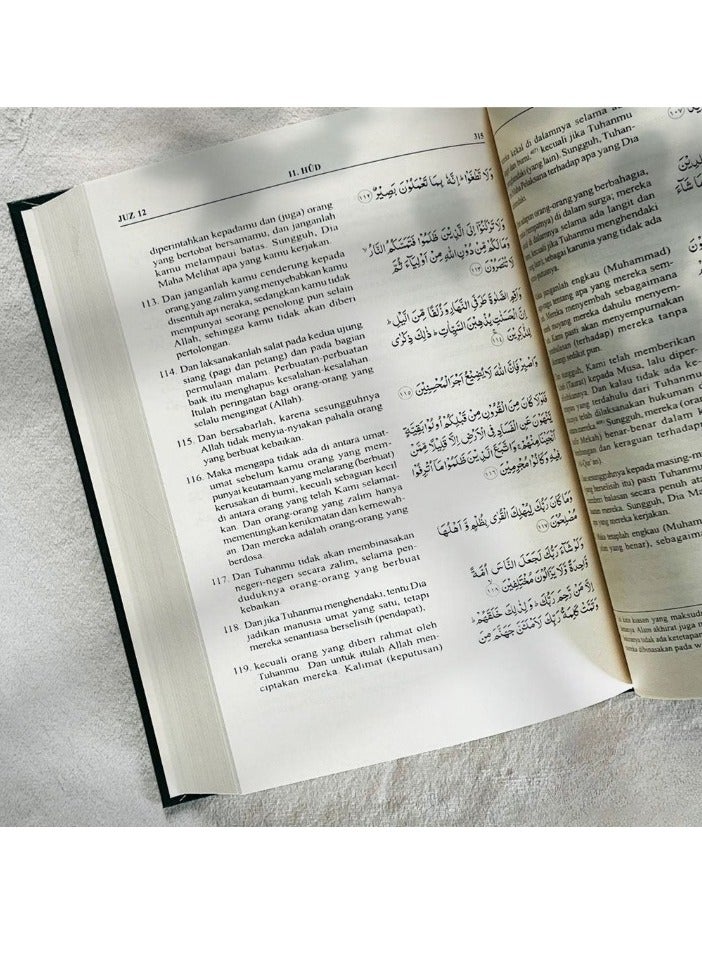 315
11. HŪD
JUZ 12
diperintahkan kepadamu dan (juga) orang
yang bertobat bersamamu, dan janganlah
kamu melampaui batas. Sungguh, Dia
Maha Melihat apa yang kamu kerjakan.
113. Dan janganlah kamu cenderung kepada
orang yang zalim yang menyebabkan kamu
disentuh api neraka, sedangkan kamu tidak
mempunyai seorang penolong pun selain
Allah, sehingga kamu tidak akan diberi
pertolongan.
114. Dan laksanakanlah salat pada kedua ujung
siang (pagi dan petang) dan pada bagian
permulaan malam. Perbuatan-perbuatan
baik itu menghapus kesalahan-kesalahan
Itulah peringatan bagi orang-orang yang
selalu mengingat (Allah).
115. Dan bersabarlah, karena sesungguhnya
Allah tidak menyia-nyiakan pahala orang
yang berbuat kebaikan.
116. Maka mengapa tidak ada di antara umat-
umat sebelum kamu orang yang mem-
punyai keutamaan yang melarang (berbuat)
kerusakan di bumi, kecuali sebagian kecil
di antara orang yang telah Kami selamat-
kan. Dan orang-orang yang zalim hanya
mementingkan kenikmatan dan kemewah-
an. Dan mereka adalah orang-orang yang
berdosa.
117. Dan Tuhanmu tidak akan membinasakan
negeri-negeri secara zalim, selama pen-
duduknya orang-orang yang berbuat
kebaikan.
118. Dan jika Tuhanmu menghendaki, tentu Dia
jadikan manusia umat yang satu, tetapi
mereka senantiasa berselisih (pendapat),
119. kecuali orang yang diberi rahmat oleh
Tuhanmu. Dan untuk itulah Allah men-
ciptakan mereka. Kalimat (keputusan)
وَلَا تَطْغَوْا ۗ اِنَّهٗ بِمَا تَعْمَلُوْنَ بَصِيْرٌ ١١٢
وَلَا تَرْكَنُوْٓا اِلَى الَّذِيْنَ ظَلَمُوْا فَتَمَسَّكُمُ النَّارُ ۙ
وَمَا لَكُمْ مِّنْ دُوْنِ اللّٰهِ مِنْ اَوْلِيَاۤءَ ثُمَّ
لَا تُنْصَرُوْنَ ١١٣
وَاَقِمِ الصَّلٰوةَ طَرَفَيِ النَّهَارِ وَزُلَفًا مِّنَ الَّيْلِ ۗ
اِنَّ الْحَسَنٰتِ يُذْهِبْنَ السَّيِّاٰتِ ۗ ذٰلِكَ ذِكْرٰى
لِلذّٰكِرِيْنَ ١١٤
وَاصْبِرْ فَاِنَّ اللّٰهَ لَا يُضِيْعُ اَجْرَ الْمُحْسِنِيْنَ ١١٥
فَلَوْلَا كَانَ مِنَ الْقُرُوْنِ مِنْ قَبْلِكُمْ اُولُوْا بَقِيَّةٍ
يَّنْهَوْنَ عَنِ الْفَسَادِ فِى الْاَرْضِ اِلَّا قَلِيْلًا مِّمَّنْ
اَنْجَيْنَا مِنْهُمْ ۚ وَاتَّبَعَ الَّذِيْنَ ظَلَمُوْا مَآ اُتْرِفُوْا
فِيْهِ وَكَانُوْا مُجْرِمِيْنَ ١١٦
وَمَا كَانَ رَبُّكَ لِيُهْلِكَ الْقُرٰى بِظُلْمٍ وَّاَهْلُهَا
مُصْلِحُوْنَ ١١٧
وَلَوْ شَاۤءَ رَبُّكَ لَجَعَلَ النَّاسَ اُمَّةً
وَّاحِدَةً وَّلَا يَزَالُوْنَ مُخْتَلِفِيْنَ ١١٨
اِلَّا مَنْ رَّحِمَ رَبُّكَ ۗ وَلِذٰلِكَ خَلَقَهُمْ ۗ
وَتَمَّتْ كَلِمَةُ رَبِّكَ لَاَمْلَـَٔنَّ جَهَنَّمَ مِنَ
kekal di dalamnya selama
dan bumi, kecuali jika Tuhanmu
(yang lain). Sungguh, Tuhan-
Pelaksana terhadap apa yang Dia
١٠٧
orang-orang yang berbahagia,
di dalam surga; mereka
di dalamnya selama ada langit dan
jika Tuhanmu menghendaki
sebagai karunia yang tidak ada
شَاۤءَ
janganlah engkau (Muhammad)
tentang apa yang mereka sem-
Mereka menyembah sebagaimana
moyang mereka dahulu menyem-
Kami pasti akan menyempurnakan
(terhadap) mereka tanpa
sedikit pun.
sungguh, Kami telah memberikan
(Taurat) kepada Musa, lalu diper-
Dan kalau tidak ada ke-
yang terdahulu dari Tuhanmu
telah dilaksanakan hukuman
Sungguh, mereka (orang
Mekah) benar-benar dalam
dan keraguan terhadap
kepada masing-masing
yang berselisih itu) pasti Tuhanmu
balasan secara penuh
Sungguh, Dia
yang mereka kerjakan.
tetaplah engkau (Muhammad)
yang benar), sebagaimana
kiasan yang maksud
Alam akhirat juga
mereka tidak ada ketetapan
dibinasakan pada